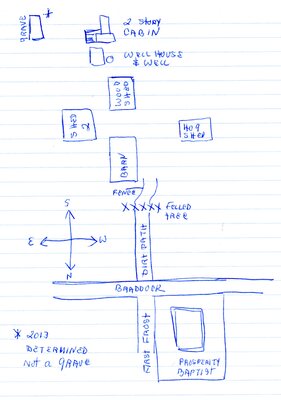 GRAVE
*
2 STORY
CABIN
WELL HOUSE
& WELL
WOOD
SHED
SHED
2
HOG
SHED
BARN
FENCE
XXXXX FELLED
TREE
S
E W
N
DIRT PATH
FIRST FROST
PROSPERITY
BAPTIST
* 2013
DETERMINED
NOT A GRAVE